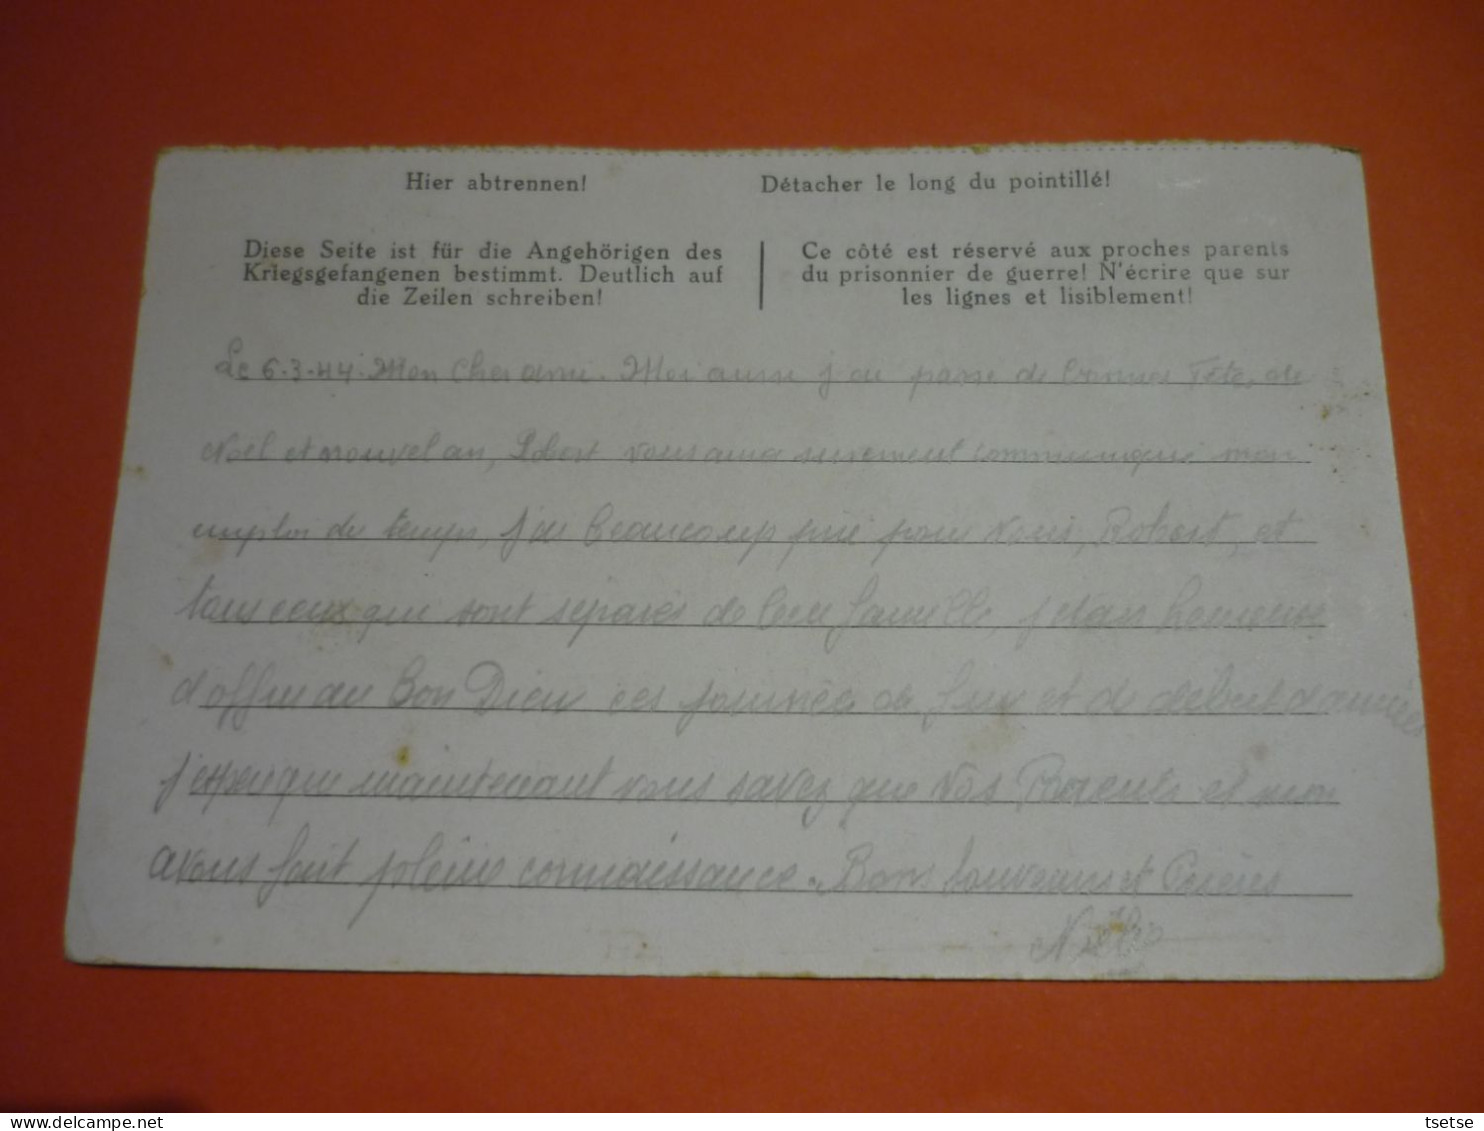 Hier abtrennen!
Détacher le long du pointillé!
Diese Seite ist für die Angehörigen des
Kriegsgefangenen bestimmt. Deutlich auf
die Zeilen schreiben!
Ce côté est réservé aux proches parents
du prisonnier de guerre! N'écrire que sur
les lignes et lisiblement!
Le 6.3.44. Mon Cher ami. Moi aussi j'ai passé de bonnes Fête, de
Noël et nouvel an, vous aura surement communiqué mon
emploi du temps, j'ai beaucoup prié pour vous, Robert, et
tous ceux qui sont séparés de leur famille, j'étais heureuse
d'offrir au Bon Dieu ces journée de fin et de début d'années
j'espèr que maintenant vous savez que vos Parents et moi
avons fait pleine connaissance. Bons Souvenirs et Prières
tsetse